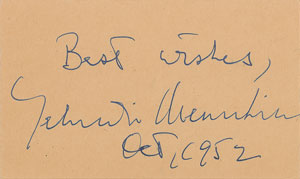 Best wishes,
Yehudi Menuhin
Oct, 1952